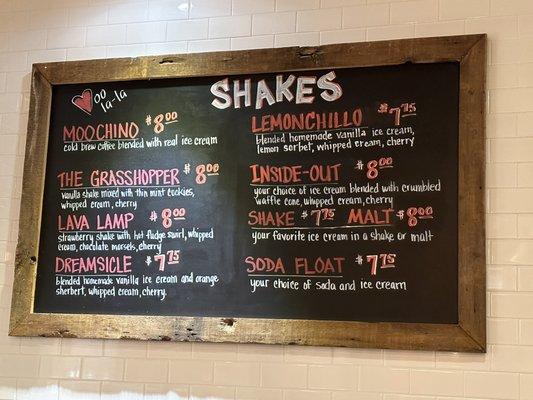 oo la-la
SHAKES
MOOCHINO $8.00
cold brew coffee blended with real ice cream
THE GRASSHOPPER $8.00
vanilla shake mixed with thin mint cookies,
whipped cream, cherry
LAVA LAMP $8.00
strawberry shake with hot fudge swirl, whipped
cream, chocolate morsels, cherry
DREAMSICLE $7.75
blended homemade vanilla ice cream and orange
sherbert, whipped cream, cherry.
LEMONCHILLO $7.75
blended homemade vanilla ice cream,
lemon sorbet, whipped cream, cherry
INSIDE-OUT $8.00
your choice of ice cream blended with crumbled
waffle cone, whipped cream, cherry
SHAKE $7.75 MALT $8.00
your favorite ice cream in a shake or malt
SODA FLOAT $7.75
your choice of soda and ice cream